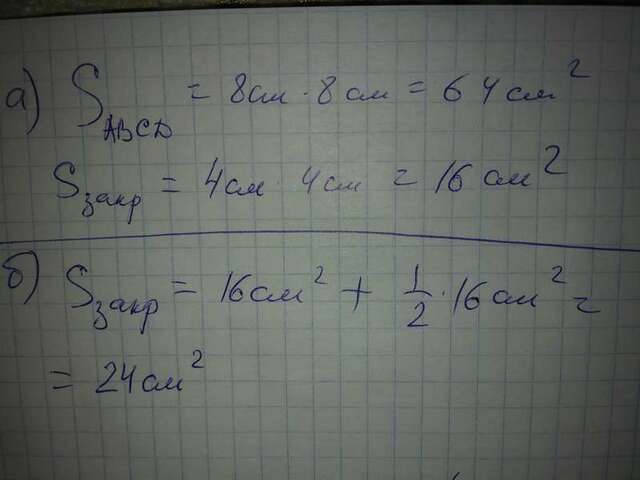 а) S ABCD = 8см · 8см = 64см²
S закр = 4см 4см = 16см²
б) S закр = 16см² + 1/2 · 16см² =
= 24см²